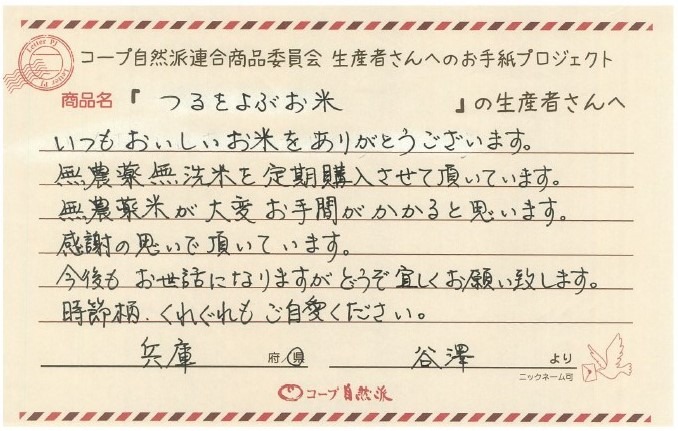 コープ自然派連合商品委員会 生産者さんへのお手紙プロジェクト
商品名『 つるをよぶお米 』の生産者さんへ
いつもおいしいお米をありがとうございます。
無農薬無洗米を定期購入させて頂いています。
無農薬米が大変お手間がかかると思います。
感謝の思いで頂いています。
今後もお世話になりますがどうぞ宜しくお願い致します。
時節柄、くれぐれもご自愛ください。
兵庫 府・県 谷澤 より
ニックネーム可
コープ自然派